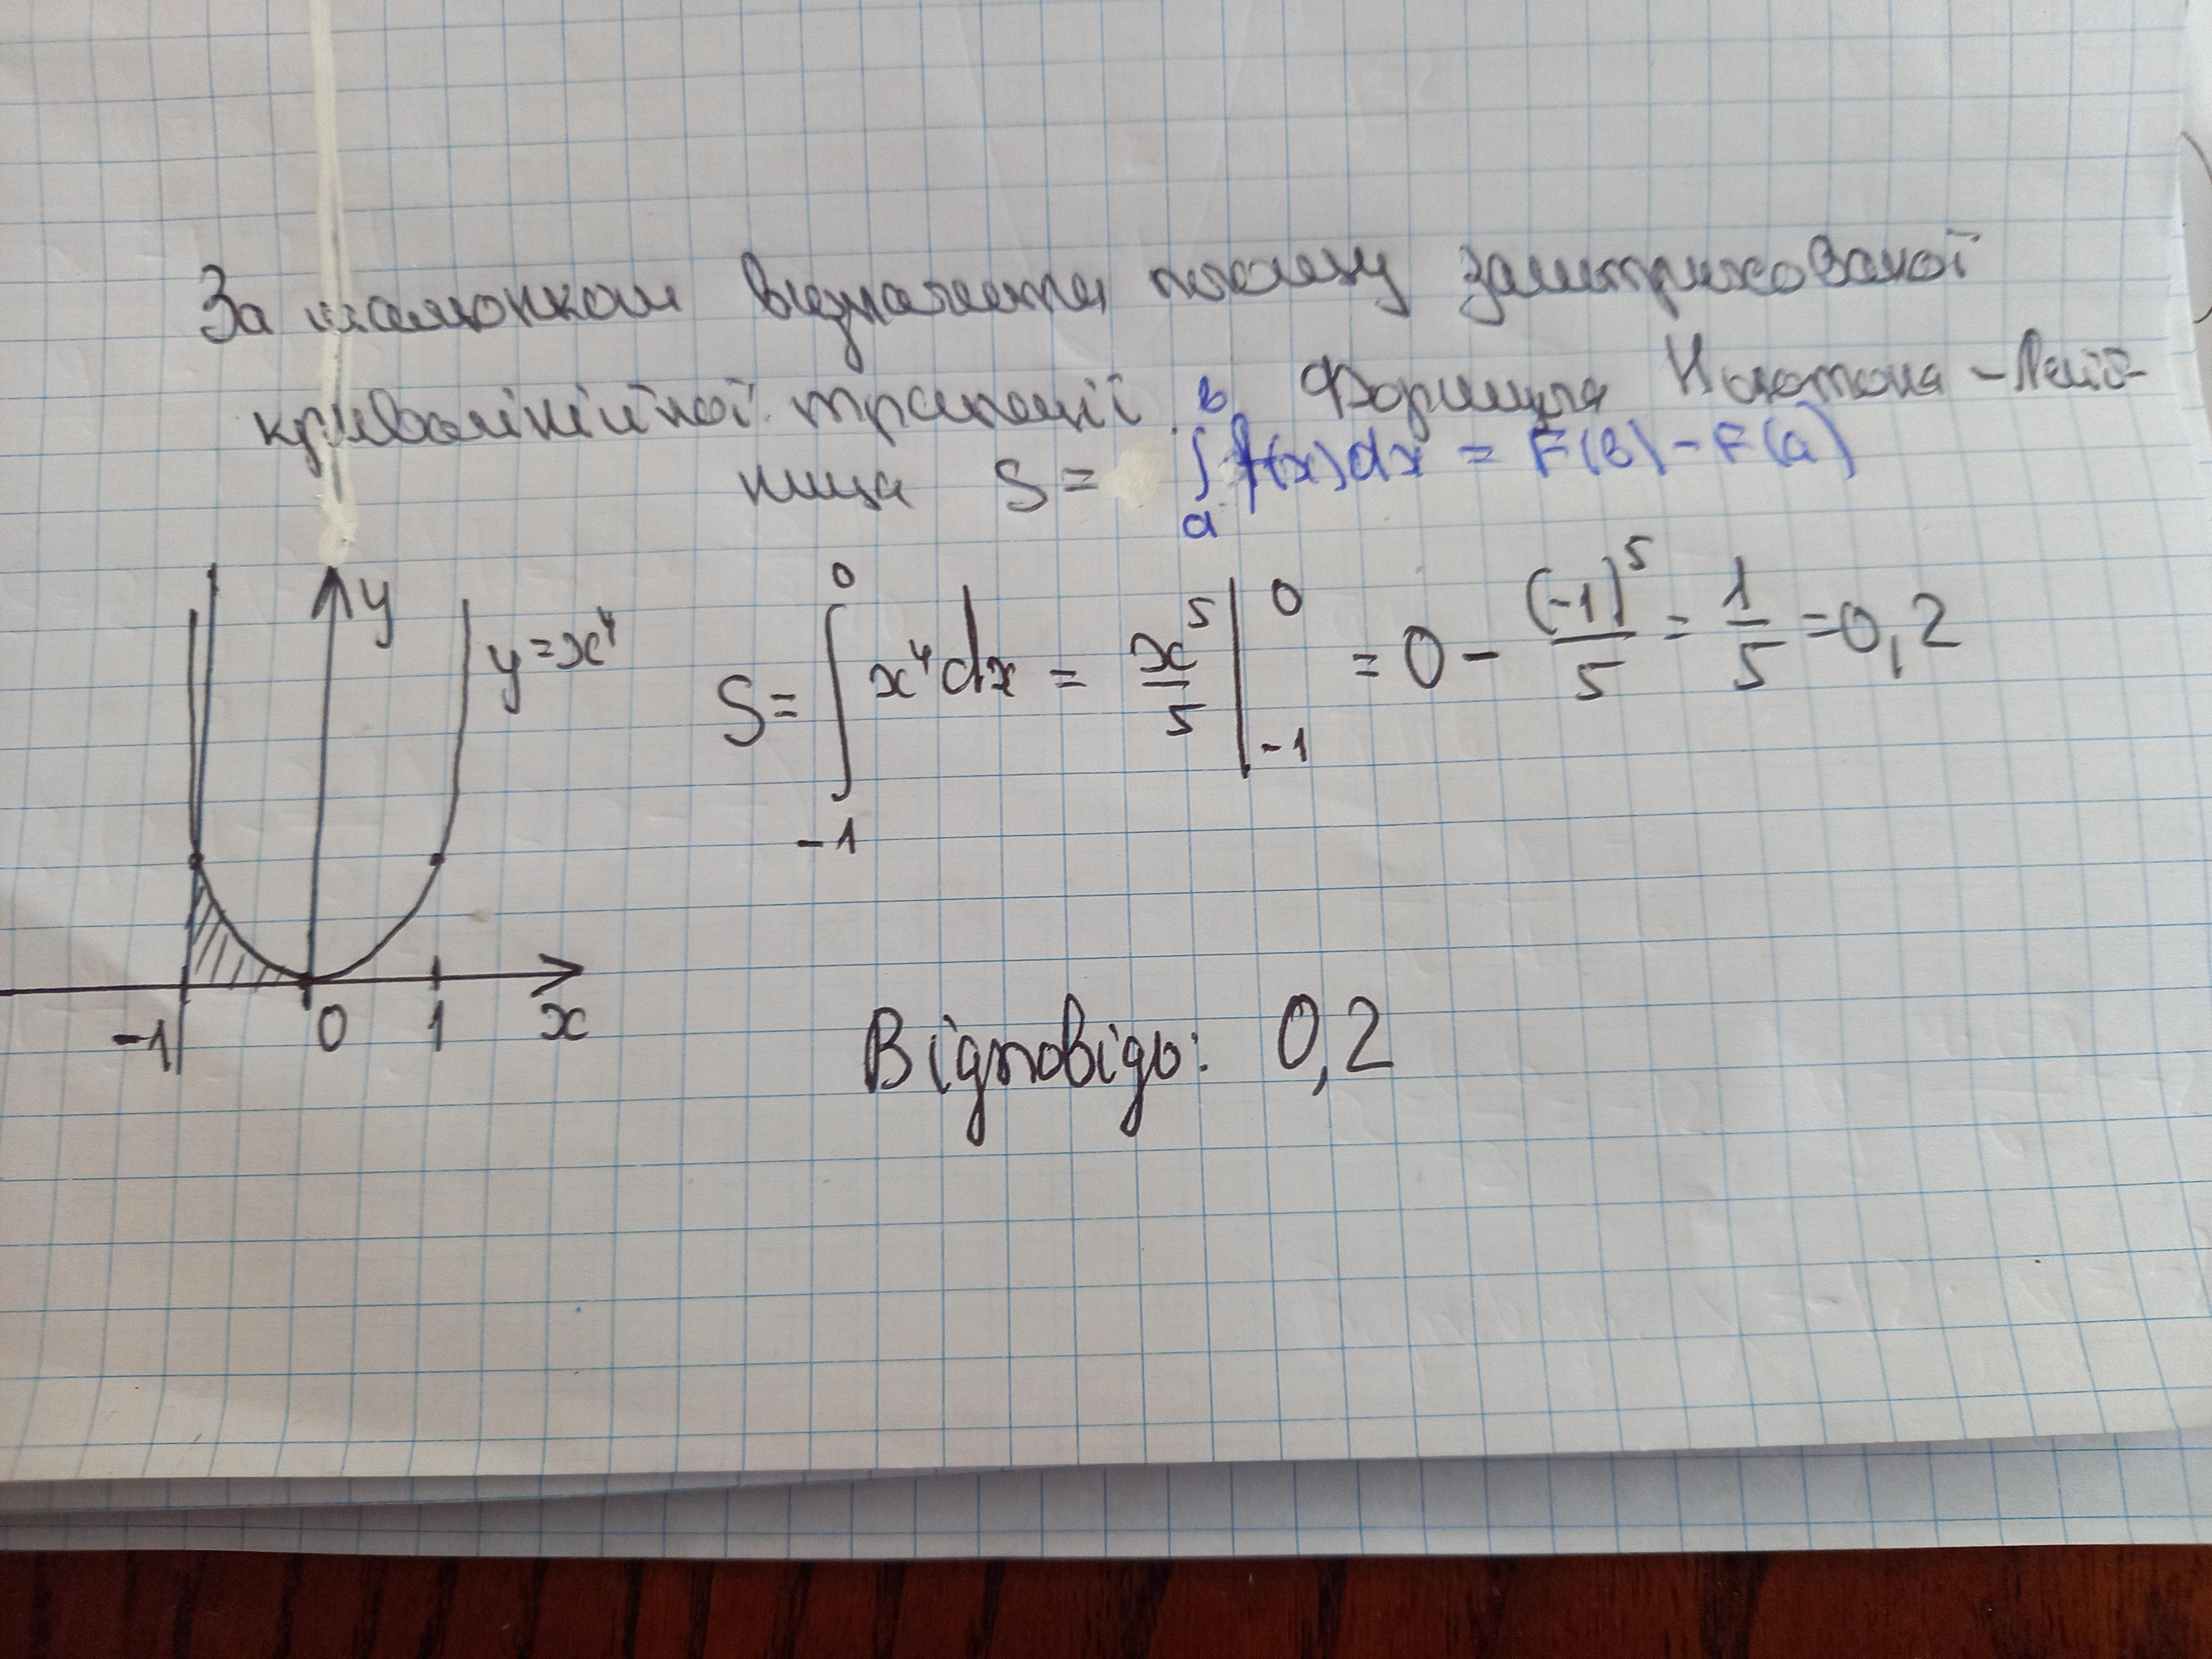 За малюнком визначити площу заштрихованої
криволінійної трапеції. Формула Ньютона - Лейб-
ніца S = ∫ₐᵇ f(x)dx = F(b) - F(a)
y
y = x⁴
S = ∫₋₁⁰ x⁴dx = x⁵/5 |₋₁⁰ = 0 - (-1)⁵/5 = 1/5 = 0,2
-1 0 1 x
Відповідь: 0,2